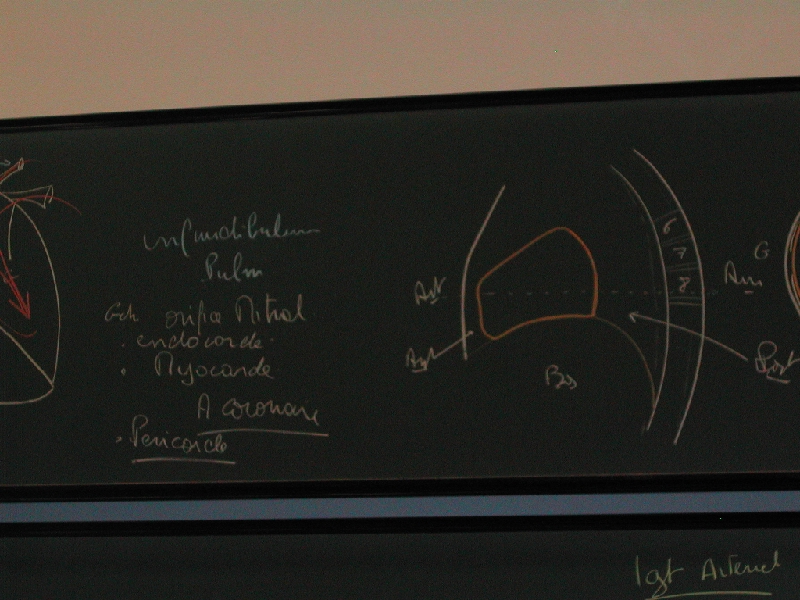 infundibulum
Pulm
Gch orifice Mitral
. endocarde.
. Myocarde
A coronaire
. Pericarde
Ant
6
7
8
G
Post
lgt Arteriel